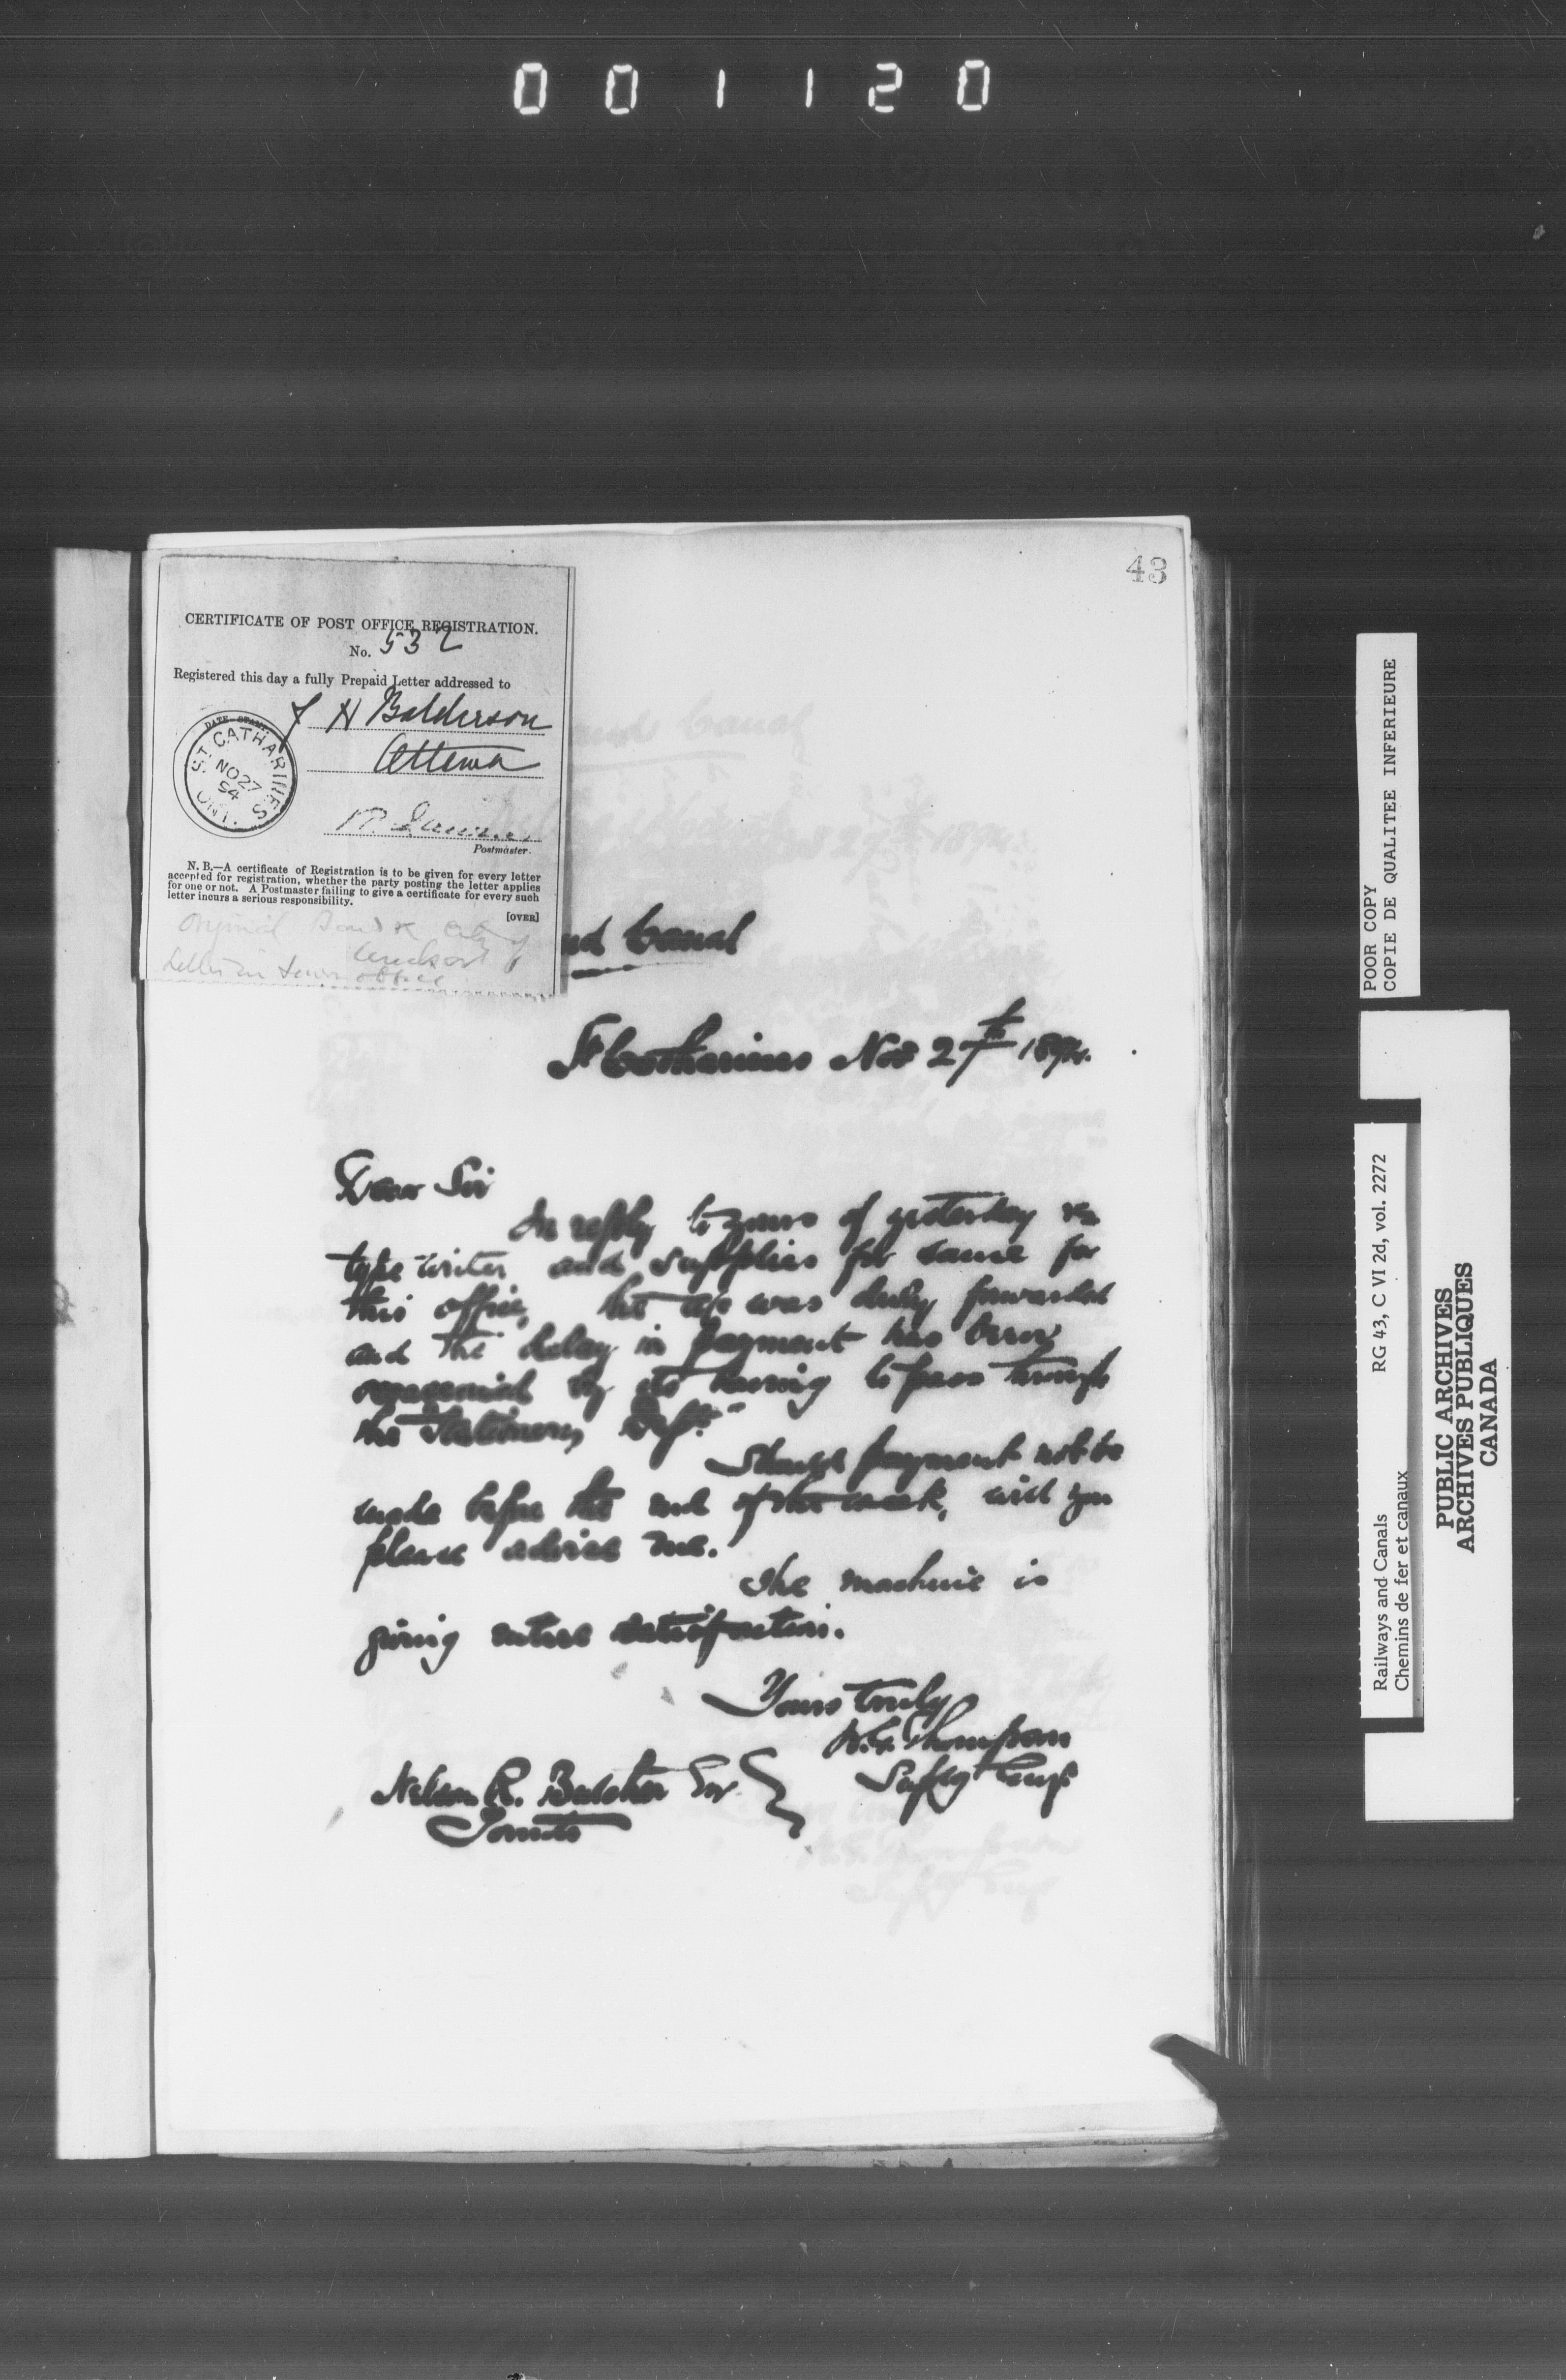 001120
43
CERTIFICATE OF POST OFFICE REGISTRATION.
No. 532
Registered this day a fully Prepaid Letter addressed to
J H Balderson
Ottawa
DATE STAMP
ST. CATHARINES
NO 27
94
ONT.
Postmaster.
N. B.—A certificate of Registration is to be given for every letter
accepted for registration, whether the party posting the letter applies
for one or not. A Postmaster failing to give a certificate for every such
letter incurs a serious responsibility.
[OVER]
Original
nd Canal
St Catharines Nov 27th 1894.
Dear Sir
In reply to yours of yesterday re
type writer and supplies for same for
this office, the a/c was duly forwarded
and the delay in payment has been
occasioned by its having to pass through
the Stationery Dept.
Should payment not be
made before the end of the week, will you
please advise me.
The machine is
giving entire satisfaction.
Yours truly
W.G. Thompson
Suptg Engr
Nelson R. Butcher Esq
Toronto
POOR COPY
COPIE DE QUALITEE INFERIEURE
RG 43, C VI 2d, vol. 2272
Railways and Canals
Chemins de fer et canaux
PUBLIC ARCHIVES
ARCHIVES PUBLIQUES
CANADA